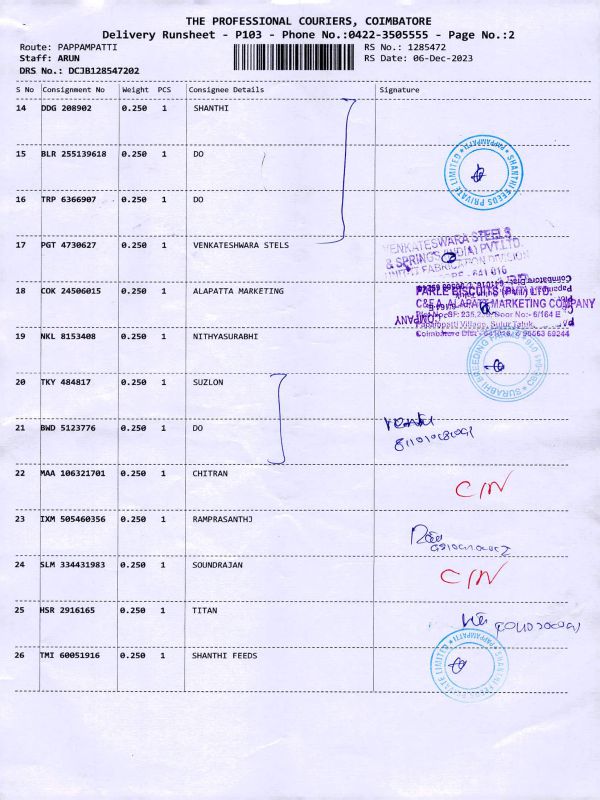 THE PROFESSIONAL COURIERS, COIMBATORE
Delivery Runsheet - P103 - Phone No.:0422-3505555 - Page No.:2
Route: PAPPAMPATTI RS No.: 1285472
Staff: ARUN RS Date: 06-Dec-2023
DRS No.: DCJB128547202
S No Consignment No Weight PCS Consignee Details Signature
14 DDG 208902 0.250 1 SHANTHI
15 BLR 255139618 0.250 1 DO
SHANTHI SEEDS PRIVATE LIMITED PAPPAMPATTI
16 TRP 6366907 0.250 1 DO
17 PGT 4730627 0.250 1 VENKATESHWARA STELS
VENKATESWARA STEELS
& SPRINGS (INDIA) PVT.LTD.
UNIT II FABRICATION DIVISION
641 016
18 COK 24506015 0.250 1 ALAPATTA MARKETING
PARLE BISCUITS (PVT) LTD.
C&F.A. ALAPATT MARKETING COMPANY
Door No:- 6/164 E
Pappampatti Village, Sulur Taluk,
19 NKL 8153408 0.250 1 NITHYASURABHI
SURABHI BREEDING FARMS
20 TKY 484817 0.250 1 SUZLON
21 BWD 5123776 0.250 1 DO
22 MAA 106321701 0.250 1 CHITRAN
C/N
23 IXM 505460356 0.250 1 RAMPRASANTHJ
24 SLM 334431983 0.250 1 SOUNDRAJAN
C/N
25 HSR 2916165 0.250 1 TITAN
26 TMI 60051916 0.250 1 SHANTHI FEEDS
PRIVATE LIMITED PAPPAMPATTI